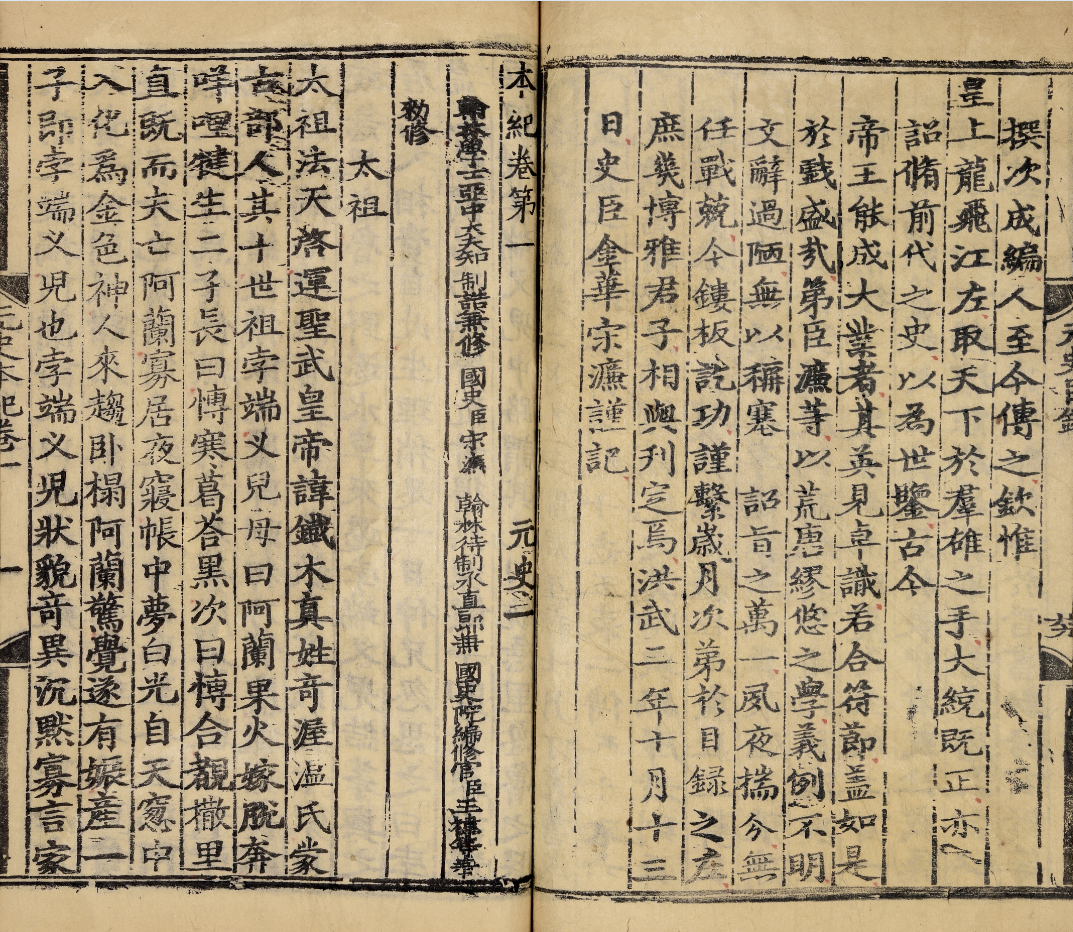 元史目録
撰次成編人至今傳之欽惟
皇上龍飛江左取天下於羣雄之手大統既正亦
詔脩前代之史以為世鑒古今
帝王能成大業者其英見卓識若合符節盖如是
於戱盛㢤第臣濂等以荒唐繆悠之學義例不明
文辭過陋無以稱塞　詔旨之萬一夙夜揣分無
任戰兢今鏤板訖功謹繫歲月次第於目録之左
庶幾博雅君子相與刊定焉洪武二年十月十三
日史臣金華宋濂謹記
本紀卷第一　元史一
翰林學士亞中大夫知制誥兼修國史臣宋濂　翰林待制承直郎兼國史院編修官臣王禕等奉
勑修
太祖
太祖法天啓運聖武皇帝諱鐵木真姓奇渥温氏蒙
古部人其十世祖孛端义兒母曰阿蘭果火嫁脱奔
咩哩犍生二子長曰博寒葛荅黑次曰博合覩撒里
直既而夫亡阿蘭寡居夜寢帳中夢白光自天窻中
入化爲金色神人來趨卧榻阿蘭驚覺遂有娠産一
子即孛端义児也孛端义児狀貌奇異沉默寡言家
元史本紀卷一
一